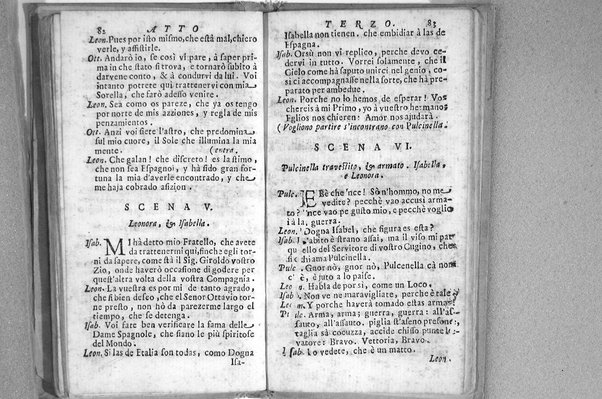 82 ATTO
Leon. Pues por isto mismo, che està mal, chiero
verle, y affistirle.
Ott. Andarò io, se così vi pare, à saper prima
in che stato si trova, e tornarò subito à
darvene conto, & à condurvi da lui. Voi
intanto potrete quì trattenervi con mia
Sorella, che farò adesso venire.
Leon. Sea como os pareze, che ya os tengo
por norte de mis azziones, y regla de mis
pensamientos.
Ott. Anzi voi siete l'astro, che predomina
sul mio cuore, il Sole che illumina la mia
mente. (entra.
Leon. Che galan! che discreto! es lastimo,
che non sea Espagnol, y hà sido gran for-
tuna la mia d'averle encontrado, y che
me haja cobrado afizion.
SCENA V.
Leonora, & Isabella.
Isab. MI hà detto mio Fratello, che avete
da trattenermi quì, finche egli tor-
ni da sapere, come stà il Sig. Giraldo vostro
Zio, onde haverò occasione di godere per
quest'altra volta della vostra Compagnia.
Leon. La vuestra es por mi de tanto agrado,
che si bien deseo, che el Senor Ottavio tor-
ne presto, non hò da parezerme largo el
tiempo, che se detenga.
Isab. Voi fate ben verificare la fama delle
Dame Spagnole, che siano le più spiritose
del Mondo.
Leon. Si las de Etalia son todas, como Dogna
Isa-
TERZO. 83
Isabella non tienen che embidiar à las de
Espagna.
Isab. Orsù non vi replico, perche devo ce-
dervi in tutto. Vorrei solamente, che il
Cielo come hà saputo unirci nel genio, co-
sì ci accompagnasse nella sorte, che hà pre-
parato per ambedue.
Leon. Porche no lo hemos de esperar! Vos
chereis à mi Primo, yo à vuestro hermano;
Eglios nos chieren: Amor nos ajudarà.
(Vogliono partire s'incontrano con Pulcinella.
SCENA VI.
Pulcinella travestito, & armato. Isabella,
e Leonora.
Pulc. EBè che 'nce! Sò n'hommo, no me
vedite? pecchè vao accusì arma-
to? 'nce vao pe gusto mio, e pecchè voglio
i à la, guerra.
Leon. Dogna Isabel, che figura es esta?
Isab. L'abito è strano assai, ma il viso mi par
quello del Servitore di vostro Cugino, che
si chiama Pulcinella.
Pulc. Gnor nò, gnor nò, Pulcenella cà non
c' è, è juto a lo paise.
Leon. Habla de por si, como un Loco.
Isab. Non ve ne maravigliate, perche è tale
Leon. Y porche haverà tomado estas armas?
Pulc. Arma, arma; guerra, guerra: all'as-
sauto, all'assauto. piglia st'aseno presone:,
taglia sà cocuzza, accide chisso punte
vatore: Bravo. Vettoria, Bravo.
Isab. Lo vedete, che è un matto.
Leon.